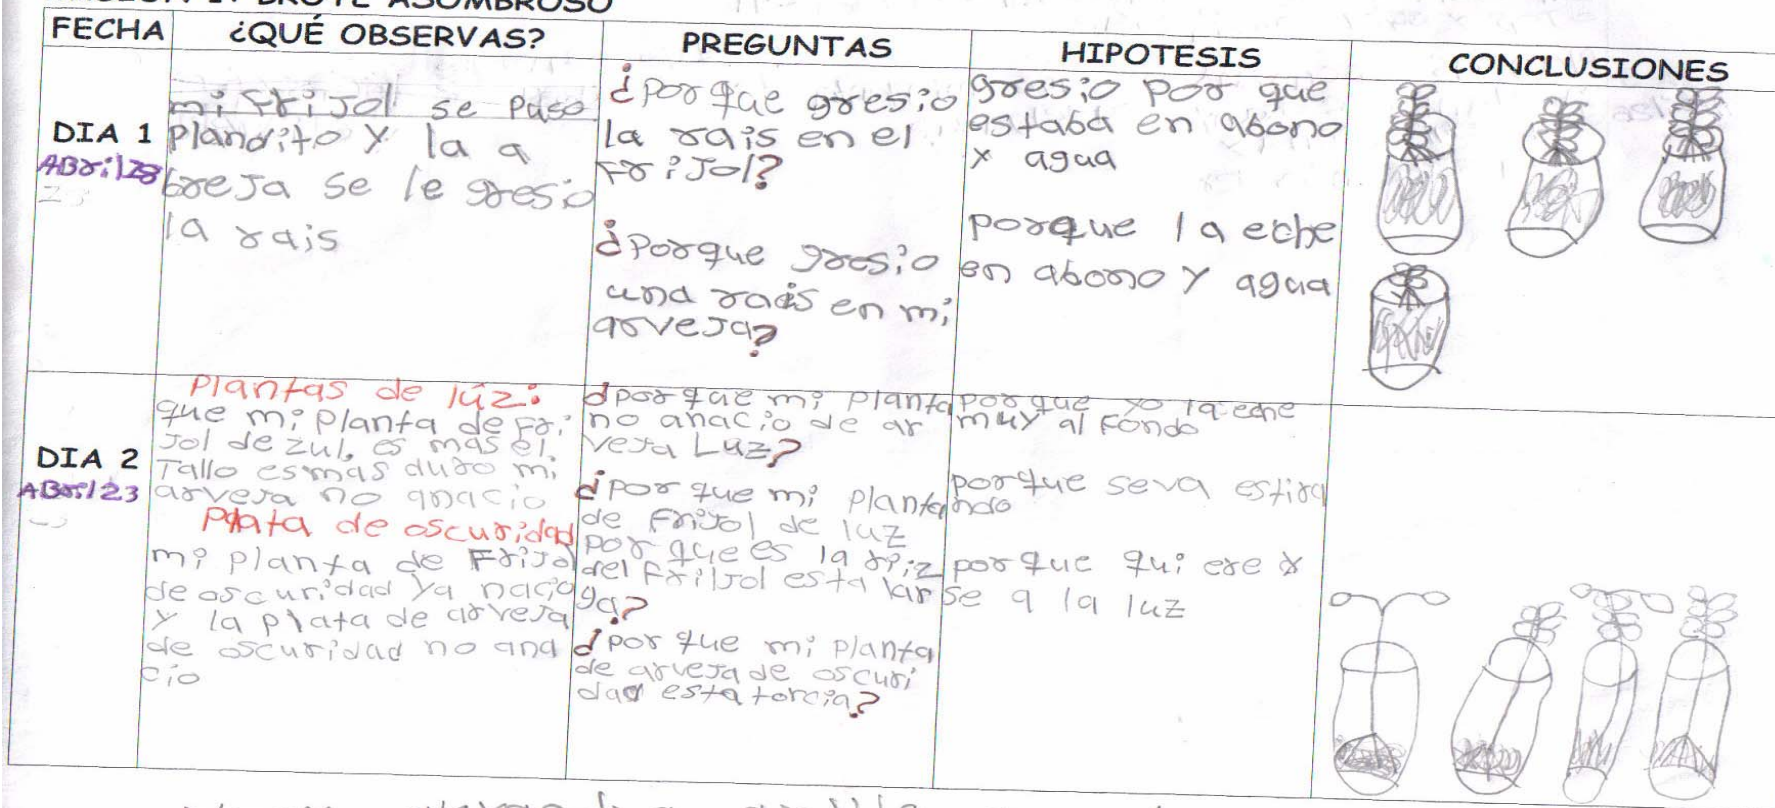 BROTE ASOMBROSO
FECHA
¿QUÉ OBSERVAS?
PREGUNTAS
HIPOTESIS
CONCLUSIONES
DIA 1
ABril28
mi frijol se puso
plandito y la a
breja se le gresio
la rais
¿Porque gresio
la rais en el
Frijol?
¿Porque gresio
una rais en mi
arveja?
gresio por que
estaba en abono
y agua
porque la eche
en abono y agua
DIA 2
ABril23
Plantas de lúz:
que mi planta de fri
jol de zul, es mas el
Tallo es mas duro mi
arveja no anacio
Plata de oscuridad
mi planta de Frijol
de oscuridad ya nacio
y la plata de arveja
de oscuridad no ana
cio
¿porque mi planta
no anacio de ar
veja Luz?
¿por que mi planta
de frijol de luz
por que es la riiz
del frilJol esta lar
ga?
¿por que mi planta
de arveja de oscuri
dad esta torcia?
por que yo la eche
muy al fondo
porque seva estira
ndo
porque qui ere ir
se a la luz